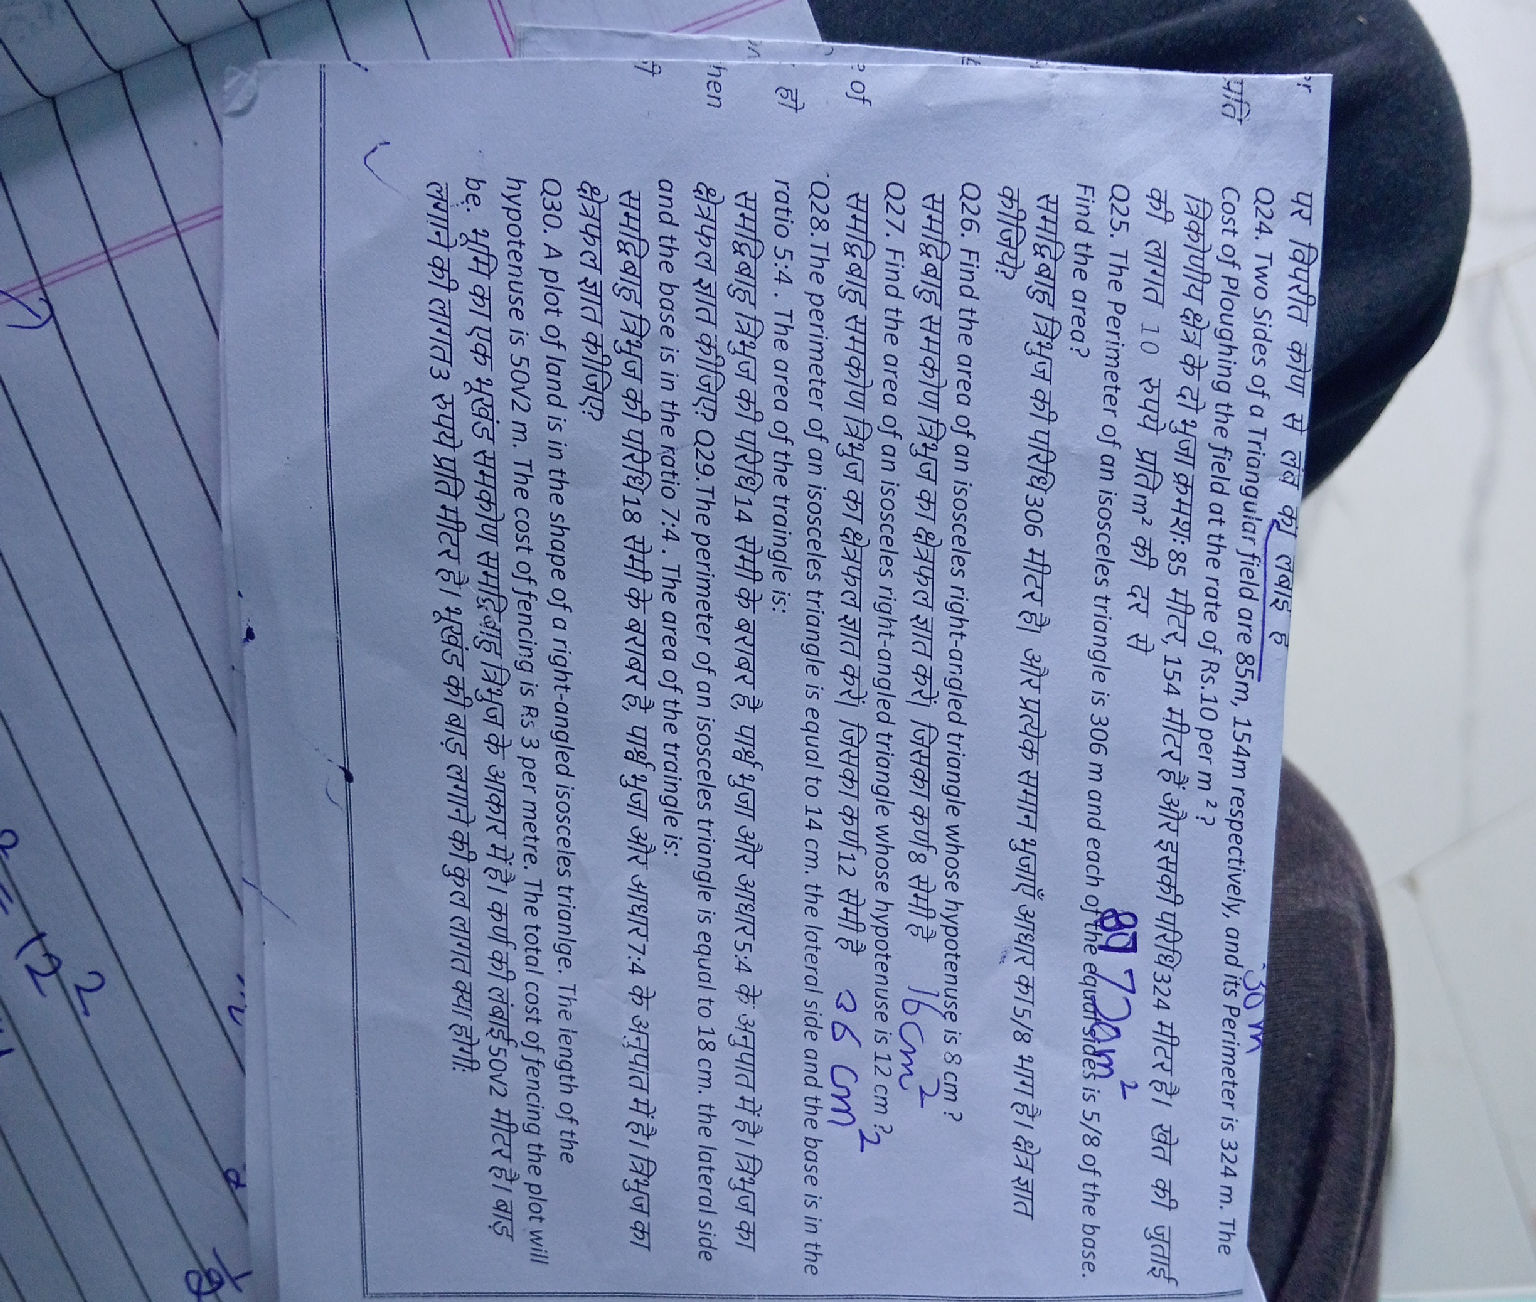 पर विपरीत कोण से लंब की लंबाई है
30 m
Q24. Two Sides of a Triangular field are 85m, 154m respectively, and its Perimeter is 324 m. The
Cost of Ploughing the field at the rate of Rs.10 per m ² ?
प्रति
त्रिकोणीय क्षेत्र के दो भुजा क्रमश: 85 मीटर, 154 मीटर हैं और इसकी परिधि 324 मीटर है। खेत की जुताई
की लागत 10 रुपये प्रति m² की दर से
Q25. The Perimeter of an isosceles triangle is 306 m and each of the equal sides is 5/8 of the base.
Find the area?
720m²
समद्विबाहु त्रिभुज की परिधि 306 मीटर है। और प्रत्येक समान भुजाएँ आधार का 5/8 भाग है। क्षेत्र ज्ञात
कीजिये?
Q26. Find the area of an isosceles right-angled triangle whose hypotenuse is 8 cm ?
समद्विबाहु समकोण त्रिभुज का क्षेत्रफल ज्ञात करें। जिसका कर्ण 8 सेमी है 16cm²
Q27. Find the area of an isosceles right-angled triangle whose hypotenuse is 12 cm ?
of
समद्विबाहु समकोण त्रिभुज का क्षेत्रफल ज्ञात करें। जिसका कर्ण 12 सेमी है 36 cm²
Q28.The perimeter of an isosceles triangle is equal to 14 cm. the lateral side and the base is in the
हो
ratio 5:4 . The area of the traingle is:
समद्विबाहु त्रिभुज की परिधि 14 सेमी के बराबर है, पार्श्व भुजा और आधार 5:4 के अनुपात में है। त्रिभुज का
hen
क्षेत्रफल ज्ञात कीजिए? Q29.The perimeter of an isosceles triangle is equal to 18 cm. the lateral side
and the base is in the ratio 7:4 . The area of the traingle is:
समद्विबाहु त्रिभुज की परिधि 18 सेमी के बराबर है, पार्श्व भुजा और आधार 7:4 के अनुपात में है। त्रिभुज का
क्षेत्रफल ज्ञात कीजिए?
Q30. A plot of land is in the shape of a right-angled isosceles trianlge. The length of the
hypotenuse is 50v2 m. The cost of fencing is Rs 3 per metre. The total cost of fencing the plot will
be: भूमि का एक भूखंड समकोण समद्विबाहु त्रिभुज के आकार में है। कर्ण की लंबाई 50v2 मीटर है। बाड़
लगाने की लागत 3 रुपये प्रति मीटर है। भूखंड की बाड़ लगाने की कुल लागत क्या होगी:
= 12²